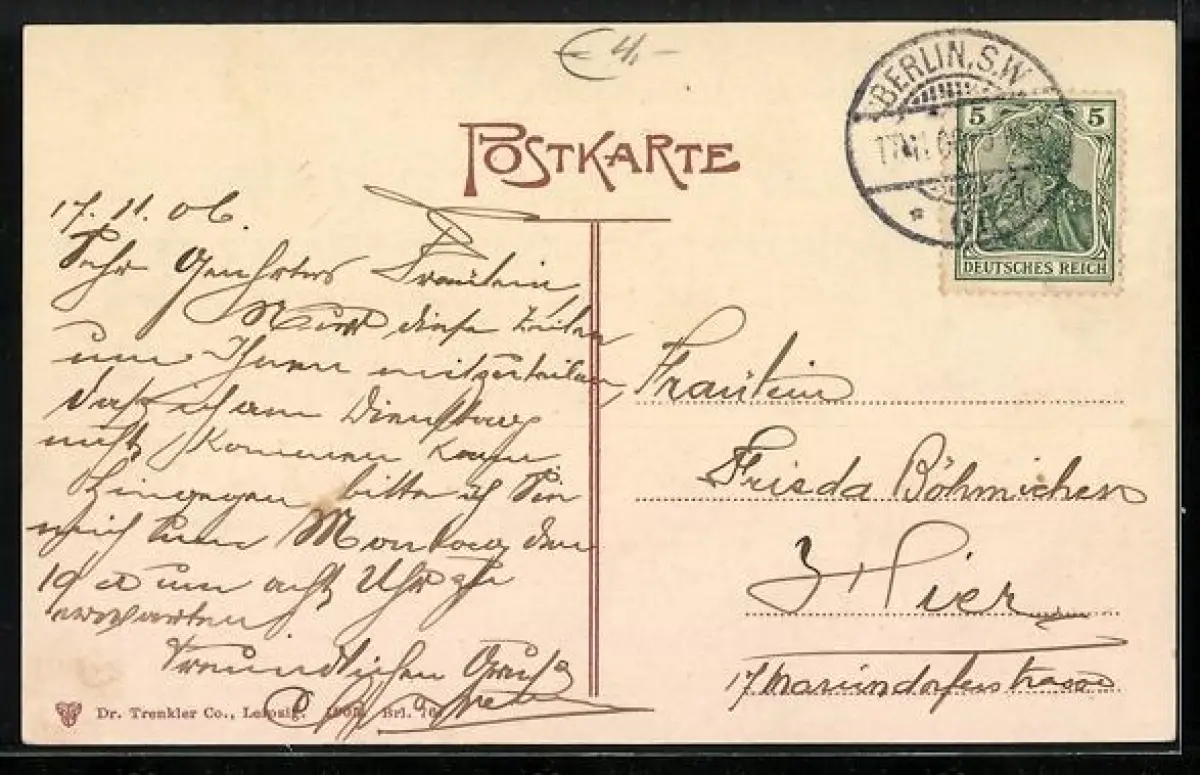 € 4,-
POSTKARTE
BERLIN, S.W.
17.11.06
5 5
DEUTSCHES REICH
17. 11. 06.
Sehr Geehrtes Fräulein,
diese Zeilen
um Ihnen mitzuteilen,
daß ich am Dienstag
nicht kommen kann
hingegen bitte ich Sie
mich Montag den
19 um acht Uhr zu
erwarten
Freundlichen Gruß
Fräulein
Frieda Böhmichen
Hier
17 Mariendorferstrasse
Dr. Trenkler Co., Leipzig. 1905. Brl.